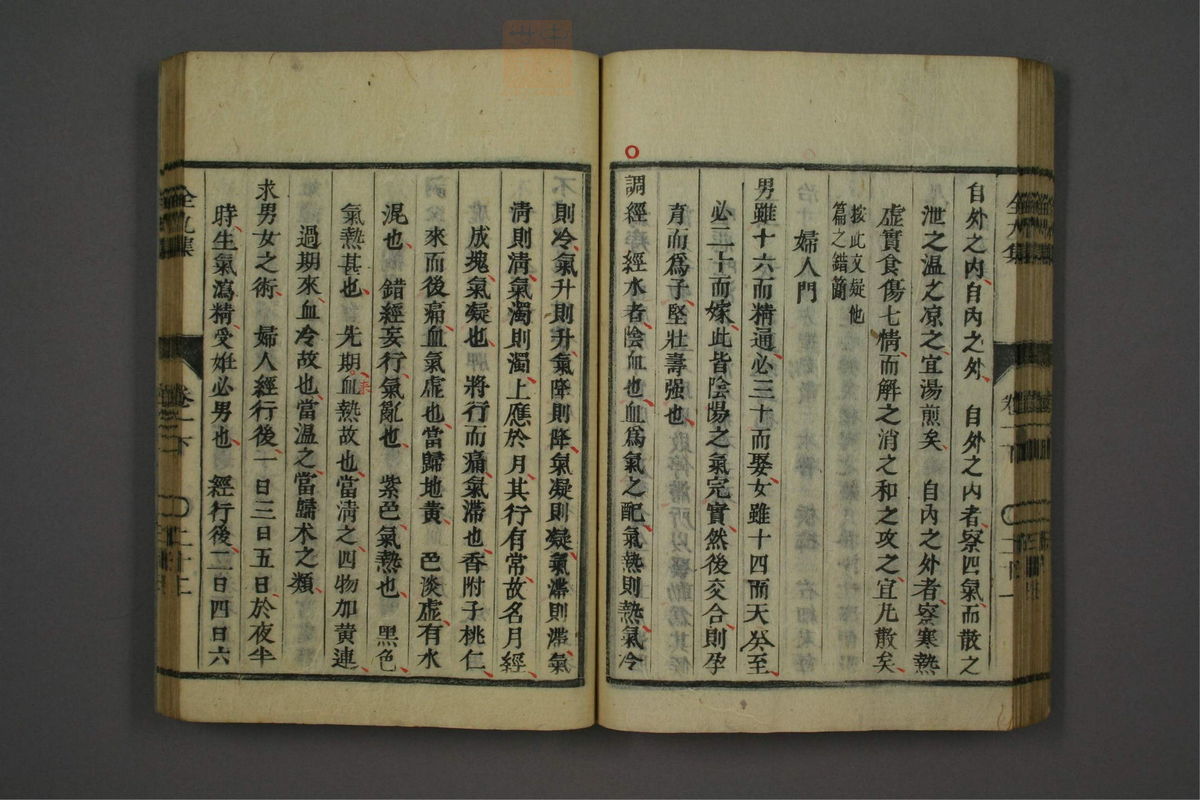 自外之內自內之外　自外之內者察四氣而散之
泄之温之凉之宜湯煎矣　自內之外者察寒熱
虛實食傷七情而解之消之和之攻之宜凡散矣
按此文疑他
篇之錯簡
婦人門
男雖十六而精通必三十而娶女雖十四而天癸至
必二十而嫁此皆陰陽之氣完實然後交合則孕
育而爲子堅壯壽强也
調經　經水者陰血也血爲氣之配氣熱則熱氣冷
則冷氣升則升氣降則降氣凝則凝氣滯則滯氣
清則清氣濁則濁上應於月其行有常故名月經
成塊氣凝也　將行而痛氣滯也香附子桃仁
來而後痛血氣虛也當歸地黄　色淡虛有水
混也　錯經妄行氣亂也　紫色氣熱也　黑色
氣熱甚也　先期來血熱故也當清之四物加黄連
過期來血冷故也當温之當歸术之類
求男女之術　婦人經行後一日三日五日於夜半
時生氣瀉精受妊必男也　經行後二日四日六